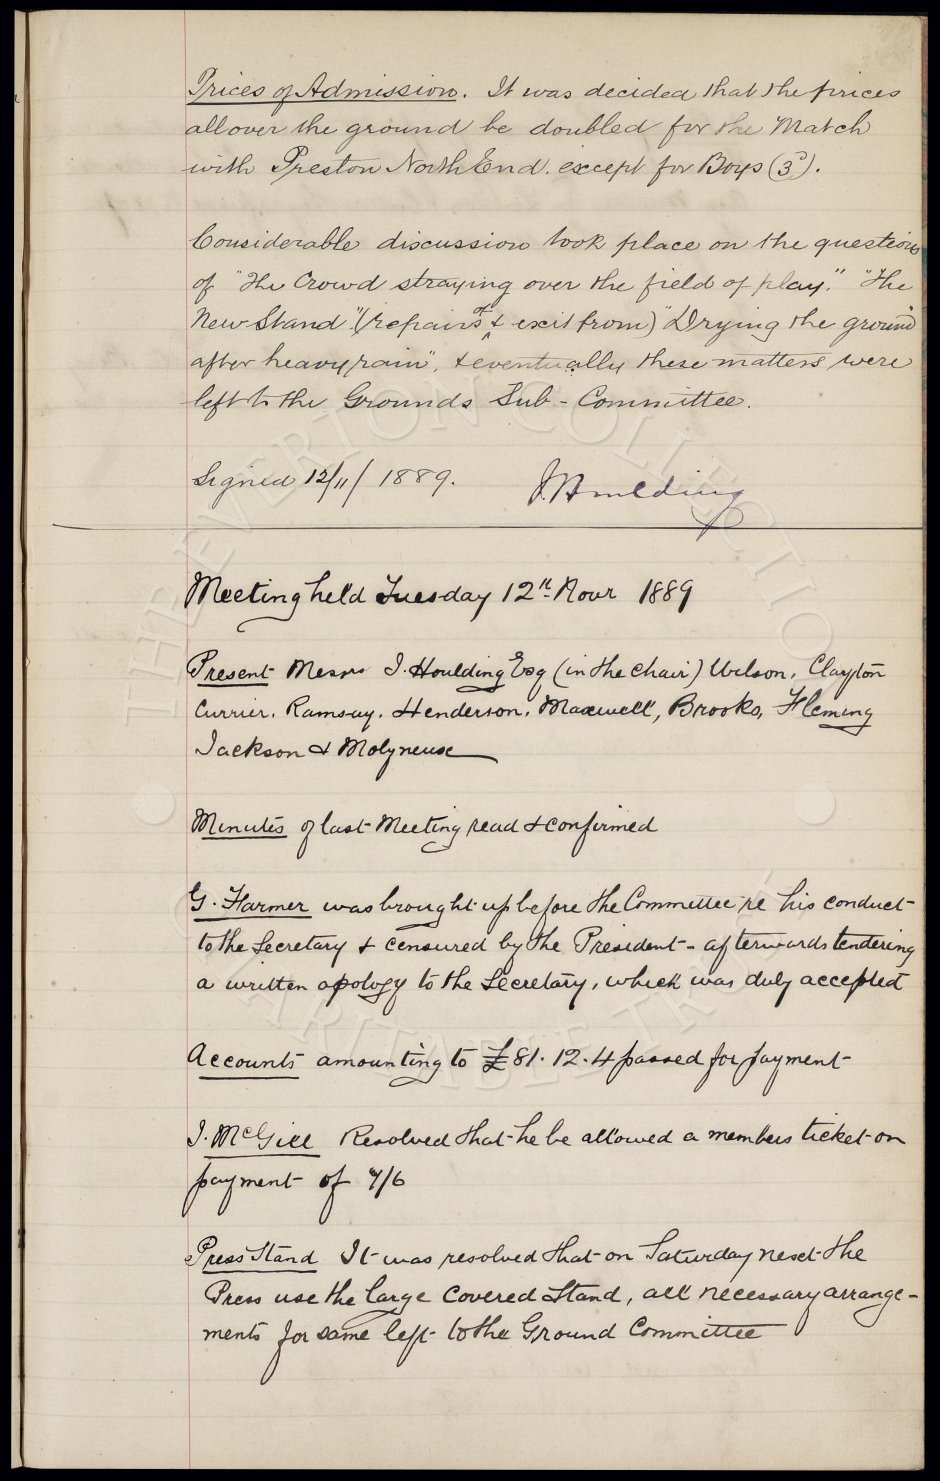 Prices of Admission. It was decided that the prices
all over the ground be doubled for the Match
with Preston North End. except for Boys (3d).
Considerable discussion took place on the question
of "The Crowd straying over the field of play." "The
New Stand" (repairs of & exit from) "Drying the ground
after heavy rain", & eventually these matters were
left to the Grounds Sub-Committee.
Signed 12/11/1889. J. Houlding
Meeting held Tuesday 12th Novr 1889
Present Messrs J. Houlding Esq (in the chair) Wilson, Clayton
Currier, Ramsay, Henderson, Maxwell, Brooks, Fleming
Jackson & Molyneux
Minutes of last Meeting read & confirmed
G. Farmer was brought up before the Committee re his conduct
to the Secretary & censured by the President - afterwards tendering
a written apology to the Secretary, which was duly accepted
Accounts amounting to £81.12.4 passed for payment
J. McGill Resolved that he be allowed a members ticket on
payment of 7/6
Press Stand It was resolved that on Saturday next the
Press use the large covered stand, all necessary arrange-
ments for same left to the Ground Committee
THE EVERTON COLLECTION
CHARITABLE TRUST